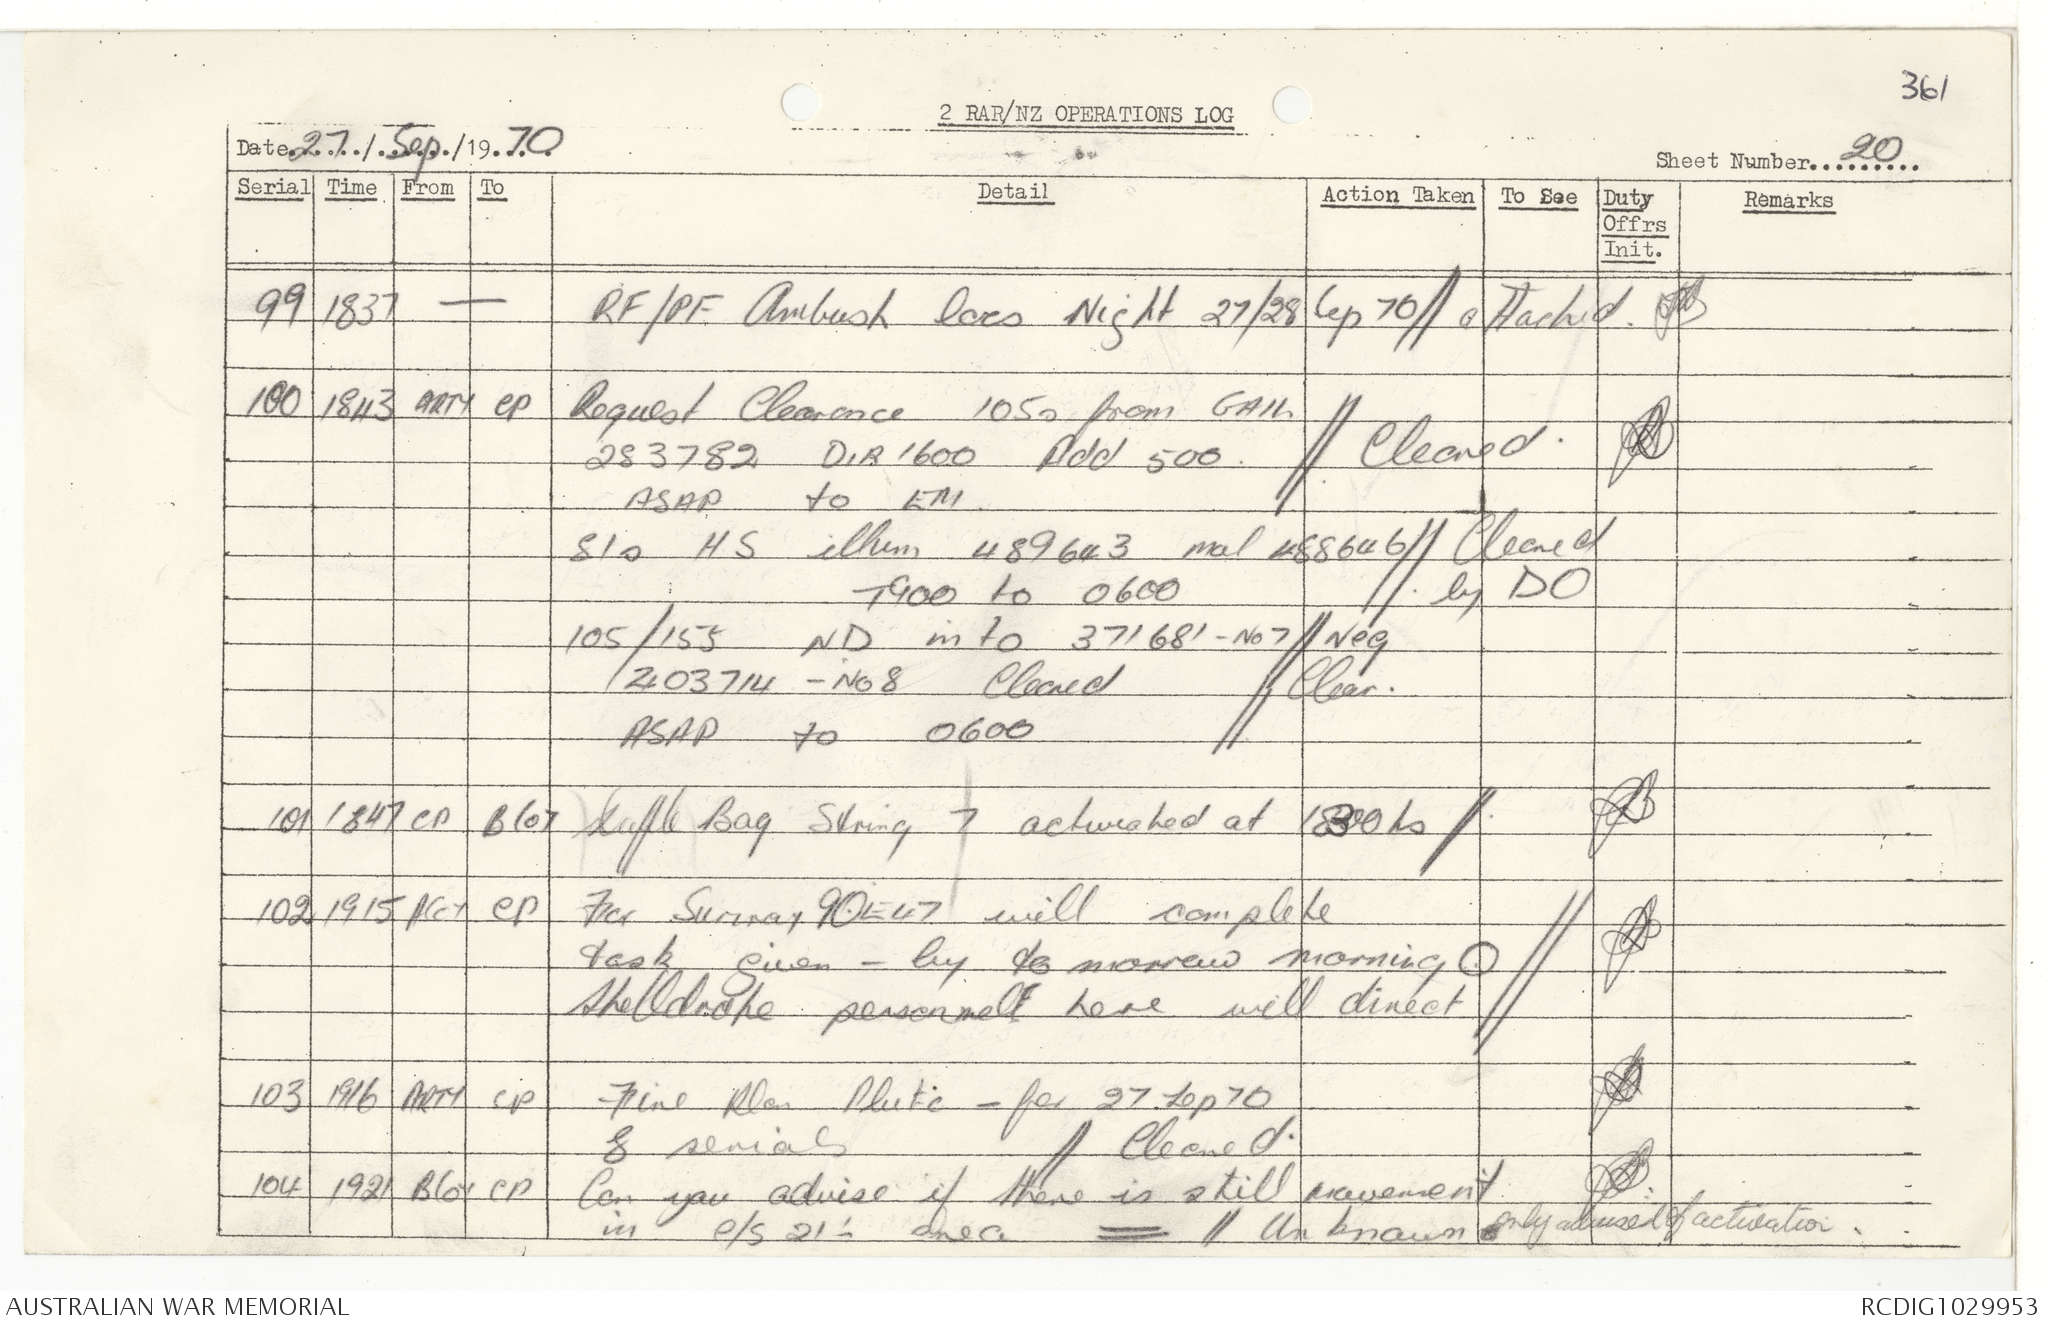 361
2 RAR/NZ OPERATIONS LOG
Date 27/Sep/1970
Sheet Number 20
Serial Time From To Detail Action Taken To See Duty Offrs Init. Remarks
99 1837 — RF/PF Ambush locs Night 27/28 Sep 70 // attached.
100 1843 ARTY CP Request Clearance 105s from GAIL
283782 DIR 1600 Add 500. // Cleared.
ASAP to EM.
81s HS illum 489643 mal 488646 // Cleared
1900 to 0600 // by DO
105/155 ND into 371681 - No 7 // Neg
403714 - No 8 Cleared // Clear.
ASAP to 0600 //
101 1847 CP B Coy Bag String 7 activated at 1830 hs //
102 1915 CP For Sunray 90 E47 will complete
task given - by to morrow morning
Shelldrake personnel here will direct //
103 1916 ARTY CP Fire Plan - for 27 Sep 70
8 serials // Cleared.
104 1921 B Coy CP Can you advise if there is still movement
in C/S 21's area = // Unknown only advised of activation.
AUSTRALIAN WAR MEMORIAL
RCDIG1029953